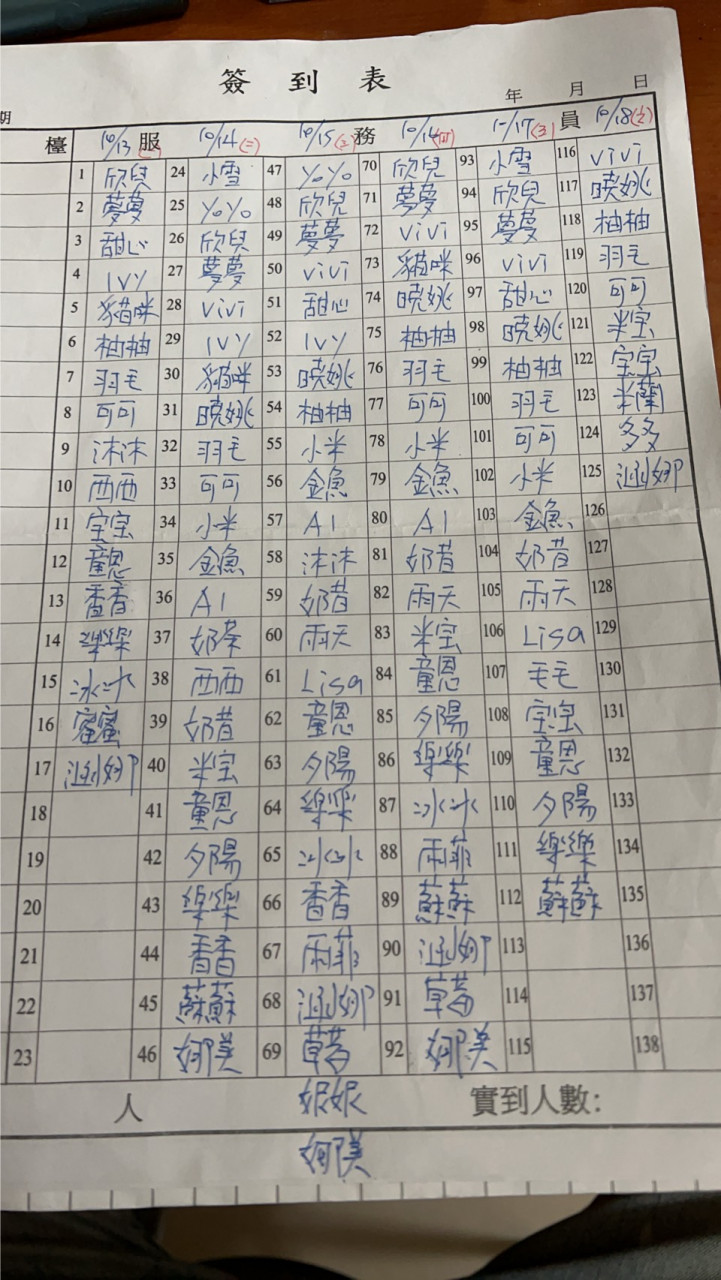 簽到表
年 月 日
期
檯 服 務 員
10/13(一) 10/14(二) 10/15(三) 10/16(四) 10/17(五) 10/18(六)
1 欣兒 24 小雪 47 YoYo 70 欣兒 93 小雪 116 ViVi
2 夢夢 25 YoYo 48 欣兒 71 夢夢 94 欣兒 117 曉姚
3 甜心 26 欣兒 49 夢夢 72 ViVi 95 夢夢 118 柚柚
4 IVY 27 夢夢 50 ViVi 73 貓咪 96 ViVi 119 羽毛
5 貓咪 28 ViVi 51 甜心 74 曉姚 97 甜心 120 可可
6 柚柚 29 IVY 52 IVY 75 柚柚 98 曉姚 121 米宝
7 羽毛 30 貓咪 53 曉姚 76 羽毛 99 柚柚 122 宝宝
8 可可 31 曉姚 54 柚柚 77 可可 100 羽毛 123 米蘭
9 沐沐 32 羽毛 55 小米 78 小米 101 可可 124 多多
10 西西 33 可可 56 金魚 79 金魚 102 小米 125 涵娜
11 宝宝 34 小米 57 AI 80 AI 103 金魚 126
12 童恩 35 金魚 58 沐沐 81 奶昔 104 奶昔 127
13 香香 36 AI 59 奶昔 82 雨天 105 雨天 128
14 樂樂 37 奶茶 60 雨天 83 米宝 106 Lisa 129
15 冰冰 38 西西 61 Lisa 84 童恩 107 毛毛 130
16 蜜蜜 39 奶昔 62 童恩 85 夕陽 108 宝宝 131
17 涵娜 40 米宝 63 夕陽 86 樂樂 109 童恩 132
18 41 童恩 64 樂樂 87 冰冰 110 夕陽 133
19 42 夕陽 65 冰冰 88 雨菲 111 樂樂 134
20 43 樂樂 66 香香 89 蘇蘇 112 蘇蘇 135
21 44 香香 67 雨菲 90 涵娜 113 136
22 45 蘇蘇 68 涵娜 91 草莓 114 137
23 46 娜美 69 草莓 92 娜美 115 138
人 妮妮 實到人數：
娜美